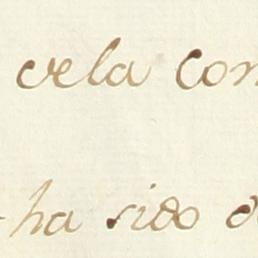 vela con
ha sido